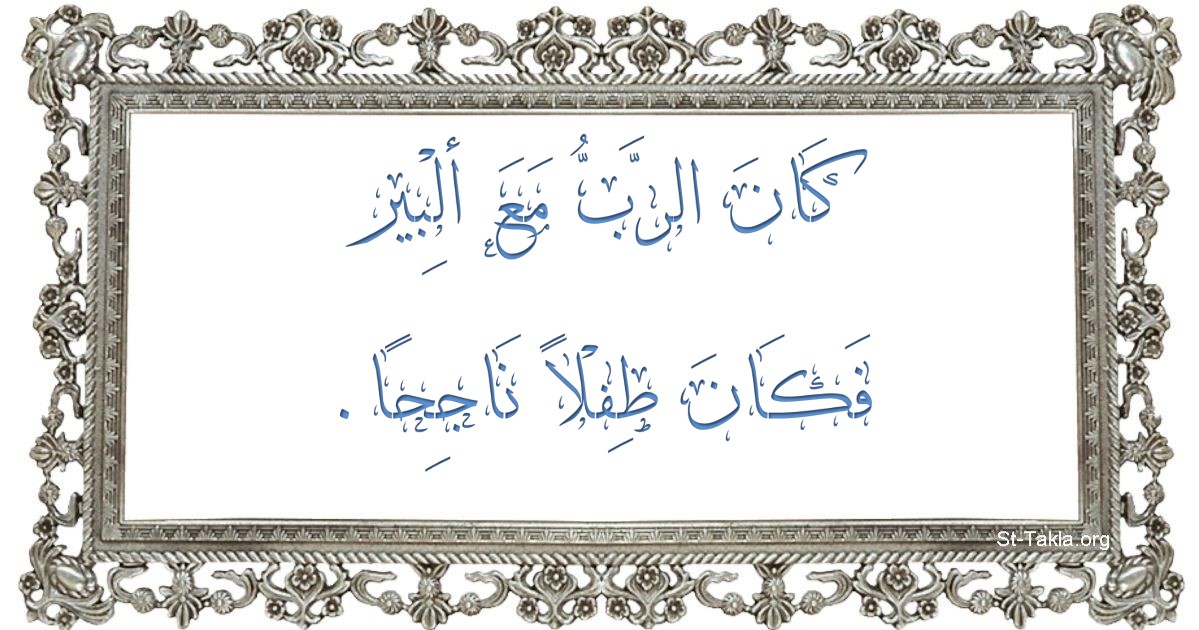 كَانَ الرَّبُّ مَعَ ألْبِير
فَكَانَ طِفْلاً نَاجِحًا .
St-Takla.org